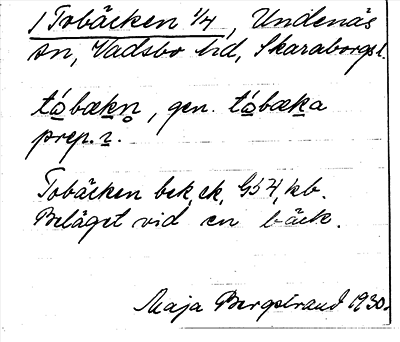 1 Tobäcken 1/4, Undenäs
sn, Vadsbo hd, Skaraborgs l.
tóbækn̥, gen. tóbæka
prep. i.
Tobäcken bek, ek, G54, kb.
Beläget vid en bäck.
Maja Bergstrand 1930.